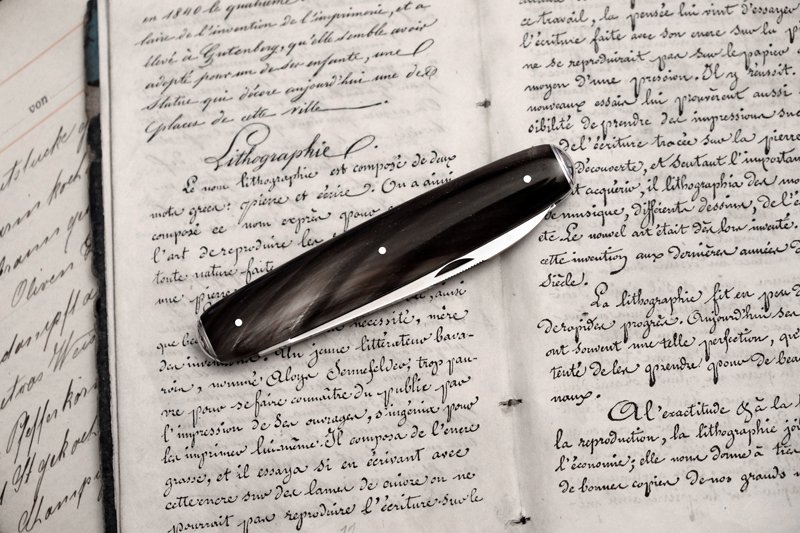 von
en 1840 le quatrième
laire de l'invention de l'imprimerie, et a
élevé à Gutenberg, qu'elle semble avoir
adopté pour un de ses enfants, une
statue qui décore aujourd'hui une des
places de cette ville
Lithographie
Le nom lithographie est composé de deux
mots grecs: pierre et écrire. On a ainsi
composé ce nom exprès pour
l'art de reproduire les
toute nature faite
une pierre
que be nécessité, mère
des inventions. Un jeune littérateur bava-
rois, nommé Aloys Sennefelder, trop pau-
vre pour se faire connaître du public par
l'impression de ses ouvrages, s'ingénia pour
les imprimer lui-même. Il composa de l'encre
grasse, et il essaya si en écrivant avec
cette encre sur des lames de cuivre on ne
pourrait pas reproduire l'écriture sur le
ce travail, la pensée lui vint d'essayer
l'écriture faite avec son encre sur la p
ne se reproduirait pas sur le papier
moyen d'une pression. Il y réussit.
nouveaux essais lui prouvèrent aussi
sibilité de prendre des impressions sur
de l'écriture tracée sur la pierre
découverte, et sentant l'important
acquérir, il lithographia des mo
de musique, différents dessins, de l'é
etc. Le nouvel art était dès lors inventé.
cette invention aux dernières années d
siècle.
La lithographie fit en peu d
de rapides progrès. Aujourd'hui ses
ont souvent une telle perfection, qu'
tenté de les prendre pour de beau
naux.
A l'exactitude & à la
la reproduction, la lithographie joi
l'économie; elle nous donne à très
de bonnes copies de nos grands